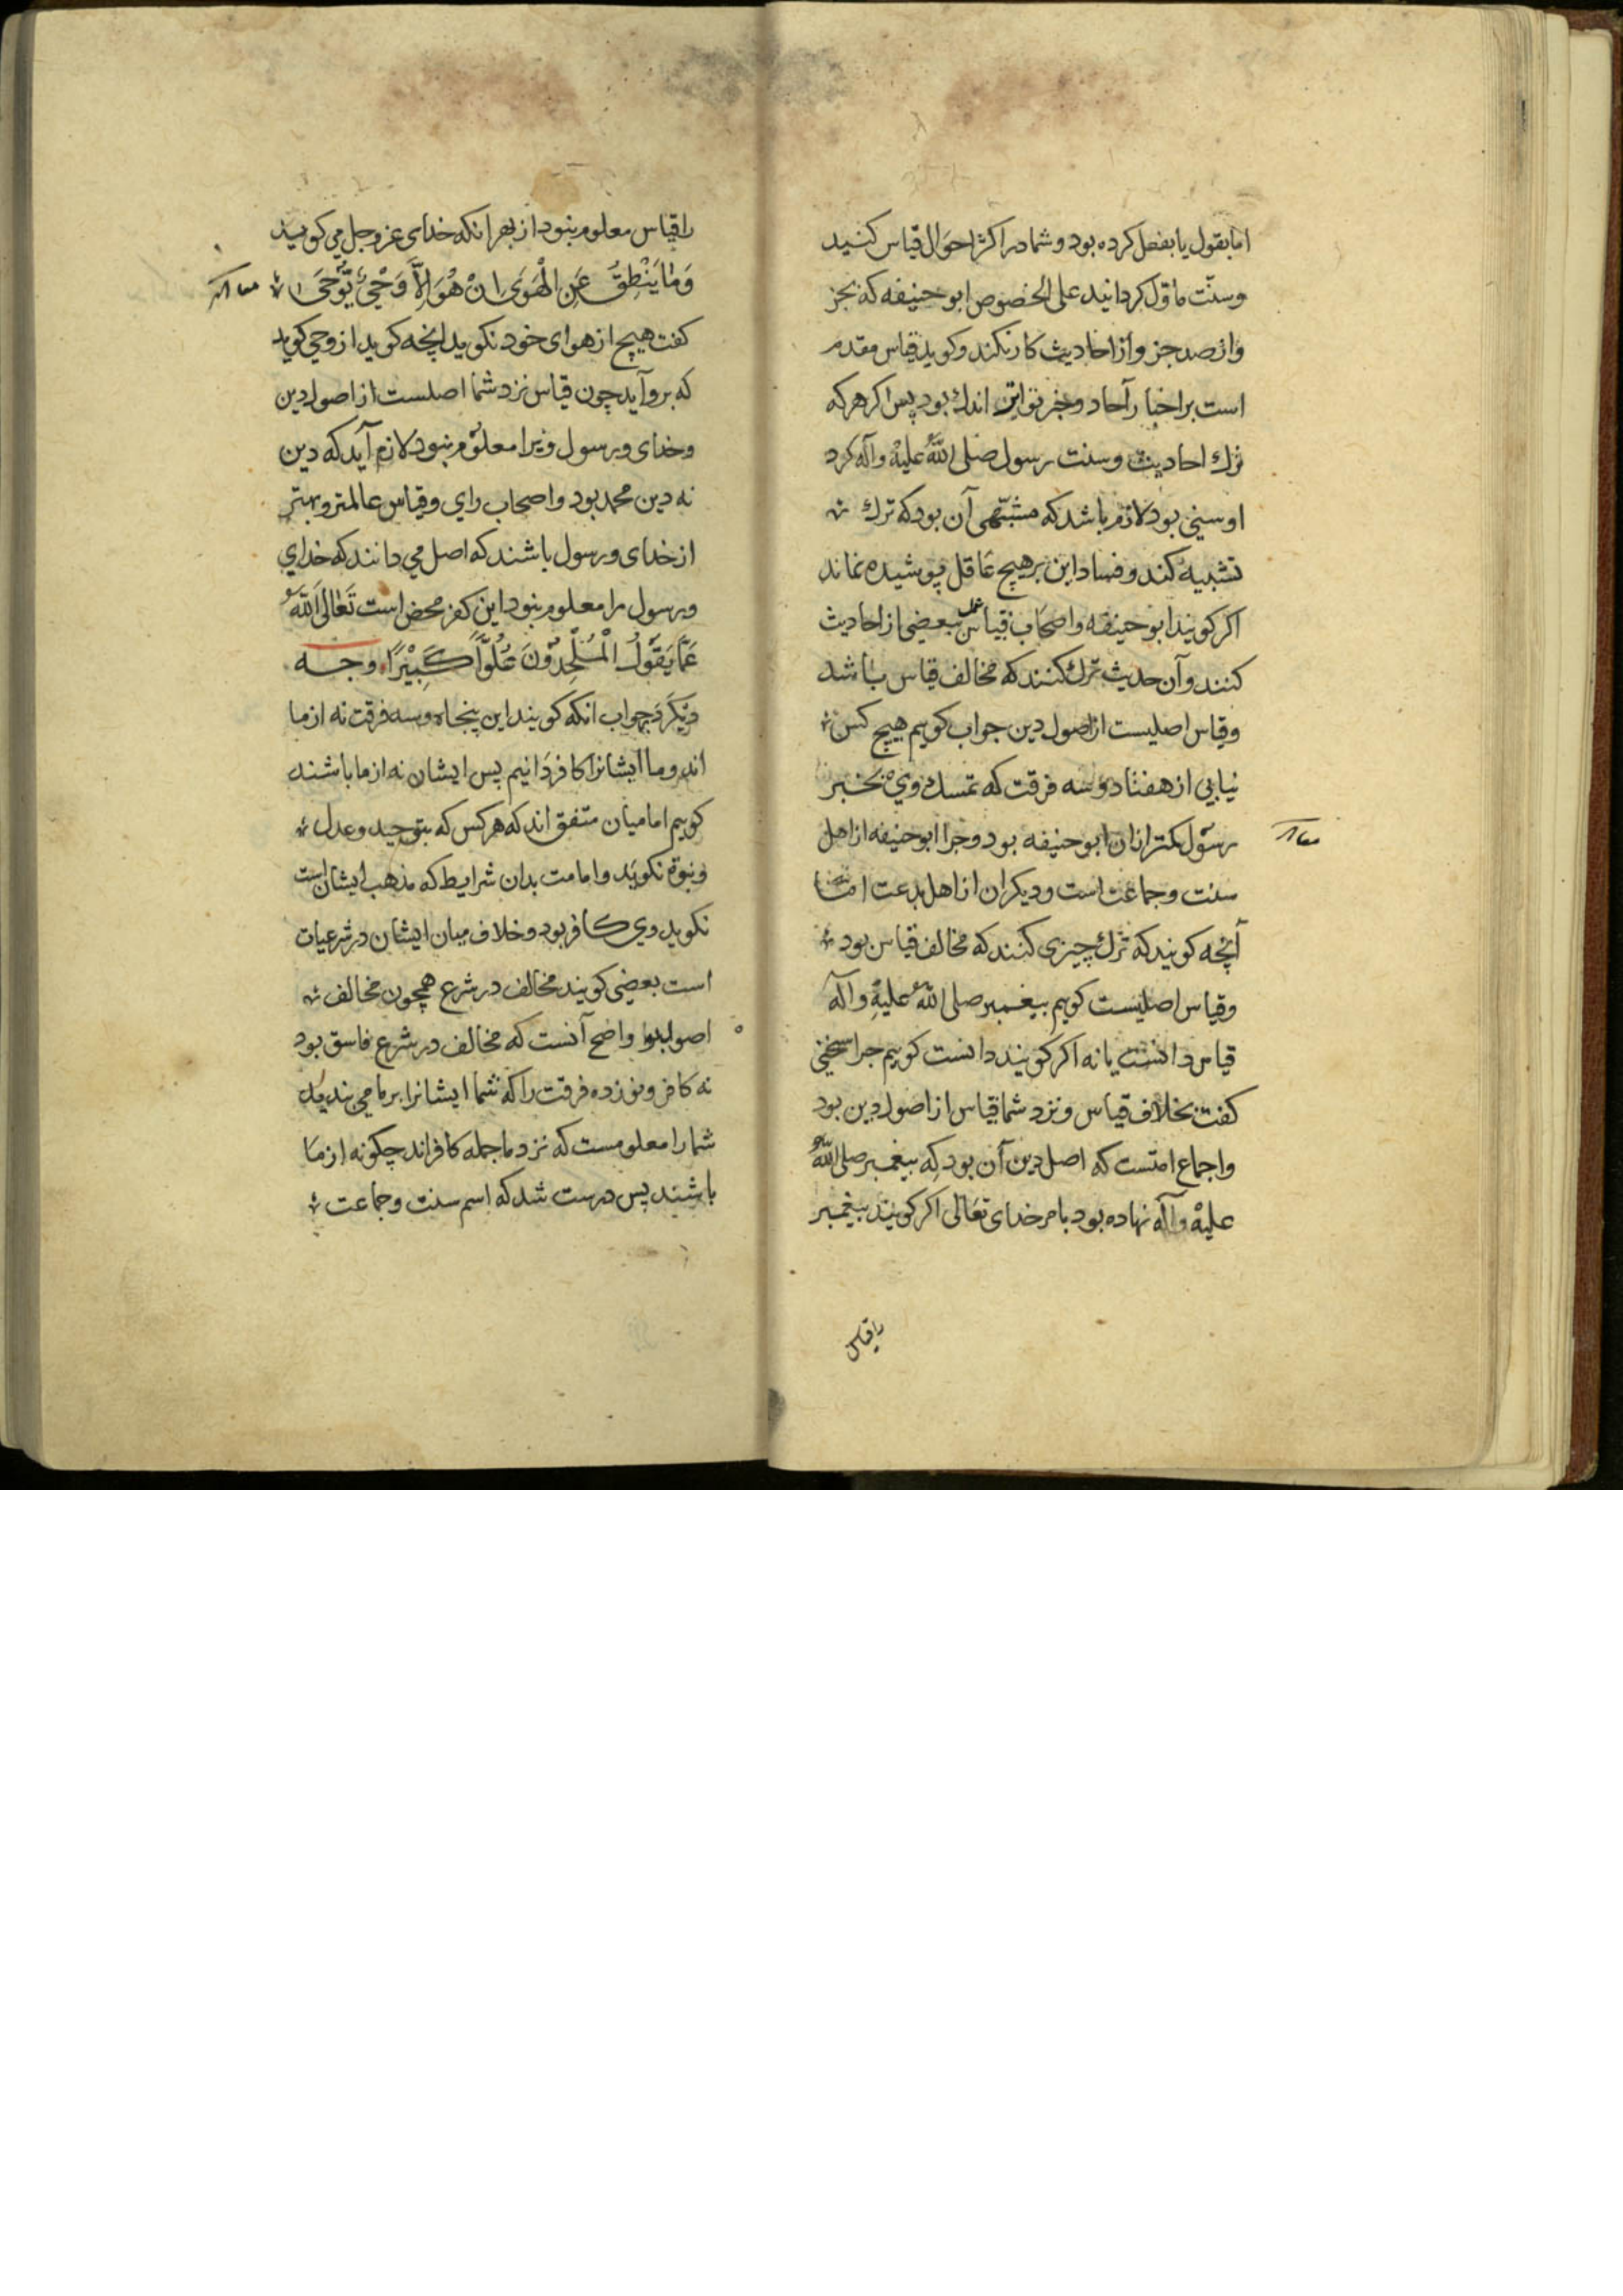 اما بقول یا بفعل کرده بود و شما در اکثر احوال قیاس کنید
وسنت ماول کردانید علی الخصوص ابو حنیفه که بجز
واز صد جزو از احادیث کار نکند وکوید قیاس مقدم
است بر اخبار آحاد وخبر تواتر اندك بود پس اکر هرکه
ترك احادیث وسنت رسول صلی اللهُ علیهْ وآله کرد
او سنی بود لازم باشد که مشبّهی آن بود که ترك
تشبیه کند وفساد این بر هیچ عاقل پوشیده نماند
اکر کویند ابو حنیفه واصحاب قیاس عمل ببعضی از احادیث
کنند وآن حدیث ترك کنند که مخالف قیاس باشد
وقیاس اصلیست از اصول دین جواب کویم هیچ کس
نیابی از هفتاد وسه فرقت که تمسك وی بخبر
رسول کمتر از ان ابو حنیفه بود وچرا ابو حنیفه از اهل
سنت وجماعت است ودیکران از اهل بدعت اما
آنچه کویند که ترك چیزی کنند که مخالف قیاس بود
وقیاس اصلیست کویم پیغمبر صلی اللهُ علیهِ وآله
قیاس دانست یا نه اکر کویند دانست کویم چرا سخنی
کفت بخلاف قیاس ونزد شما قیاس از اصول دین بود
واجماع امتست که اصل دین آن بود که پیغمبر صلی اللهُ
علیهْ وآله نهاده بود بامر خدای تعالی اکر کویند پیغمبر
را قیاس
را قیاس معلوم نبود از بهر انکه خدای عز وجل می کوید
وَمَا يَنْطِقُ عَنِ الْهَوَى انْ هُوَ اِلاَّ وَحْيٌ يُوْحَى
کفت هیچ از هوای خود نکوید انچه کوید از وحی کوید
که برو آید چون قیاس نزد شما اصلست از اصول دین
وخدای ورسول ویرا معلوم نبود لازم آید که دین
نه دین محمد بود واصحاب رای وقیاس عالمتر وبهتر
از خدای ورسول باشند که اصل می دانند که خدای
ورسول را معلوم نبود این کفر محض است تَعَالَى اللهُ
عَمَّا يَقُوْلُ الْمُلْحِدُوْنَ عُلُوًّا كَبِيْرًا وجه
دیکر در جواب انکه کویند این پنجاه وسه فرقت نه از ما
اند وما ایشانرا کافر دانیم پس ایشان نه از ما باشند
کویم امامیان متفق اند که هر کس که بتوحید وعدل
ونبوة نکوید وامامت بدان شرایط که مذهب ایشان است
نکوید وی کافر بود وخلاف میان ایشان در شرعیات
است بعضی کویند مخالف در شرع همچون مخالف
اصول بود واضح آنست که مخالف در شرع فاسق بود
نه کافر ونوزده فرقت را که شما ایشانرا بر ما می بندید
شما را معلومست که نزد ما جمله کافر اند چکونه از ما
باشند پس درست شد که اسم سنت وجماعت